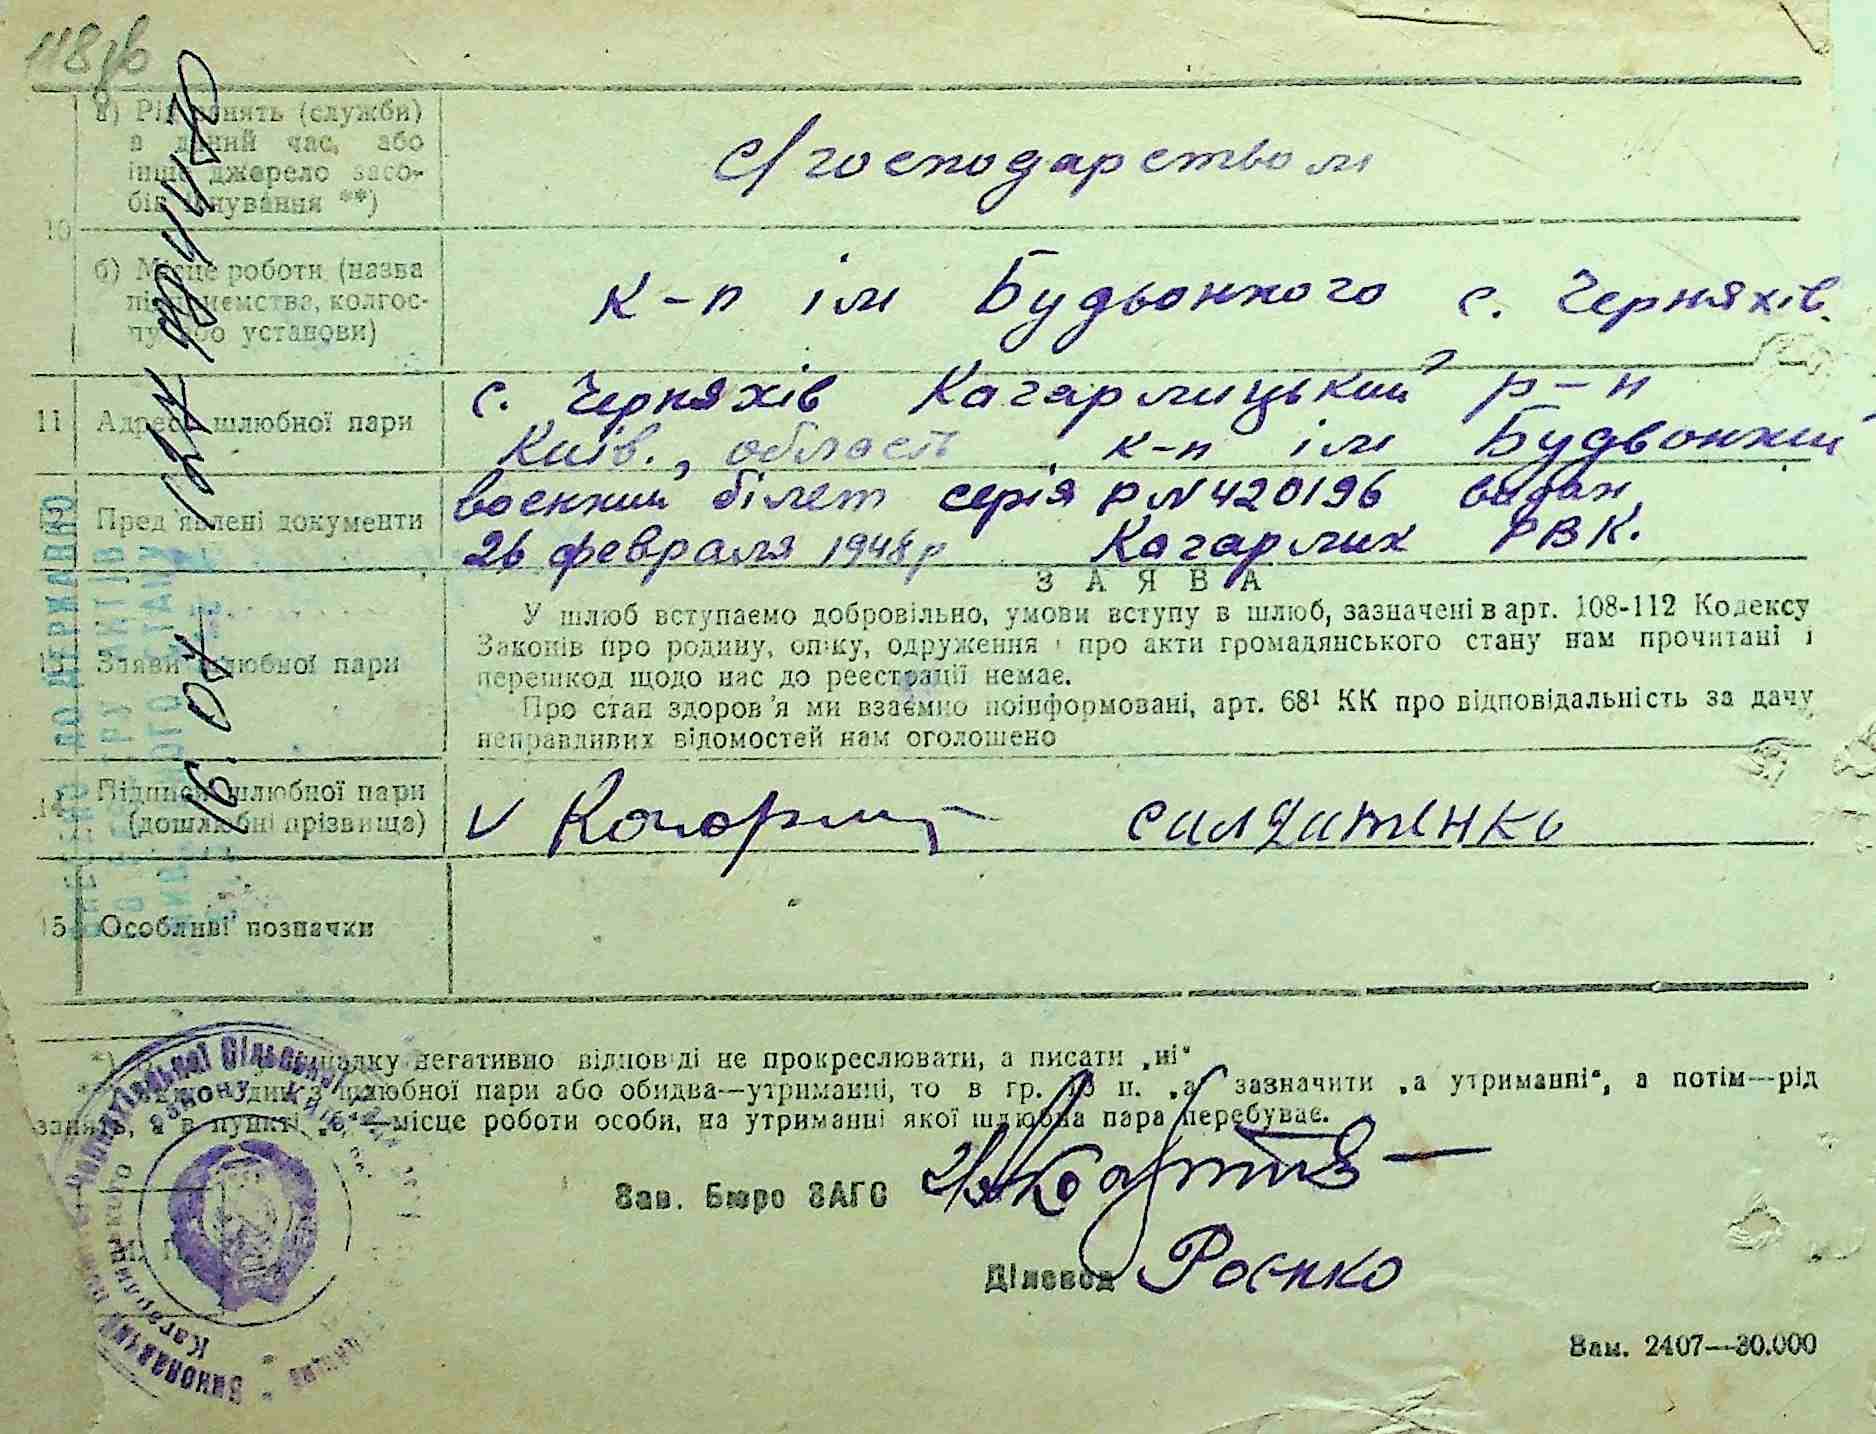 118зв
а) Рід занять (служби)
в даний час, або
інше джерело засо-
бів існування **)
С/господарством
10
б) Місце роботи (назва
підприємства, колгос-
пу або установи)
к-п ім Будьонного с. Черняхів.
11 Адреса шлюбної пари
с. Черняхів Кагарлицький р-н
Київ., область, к-п ім Будьонний
12 Пред'явлені документи
военний білет серія Р N 420196 видан
26 февраля 1948р Кагарлик РВК.
ЗАЯВА
13 Заяви шлюбної пари
У шлюб вступаємо добровільно, умови вступу в шлюб, зазначені в арт. 108-112 Кодексу
Законів про родину, опіку, одруження і про акти громадянського стану нам прочитані і
перешкод щодо нас до реєстрації немає.
Про стан здоров'я ми взаємно поінформовані, арт. 68¹ КК про відповідальність за дачу
неправливих відомостей нам оголошено
14 Підписи шлюбної пари
(дошлюбні прізвища)
v салдатенко
15 Особливі позначки
*) випадку негативно відповіді не прокреслювати, а писати „ні“
один з шлюбної пари або обидва—утриманні, то в гр. 10 п. „а“ зазначити „а утриманні“, а потім—рід
занять, а в пункті „б“—місце роботи особи, на утриманні якої шлюбна пара перебуває.
Зав. Бюро ЗАГС
Діловод Роєнко
Зам. 2407—30.000